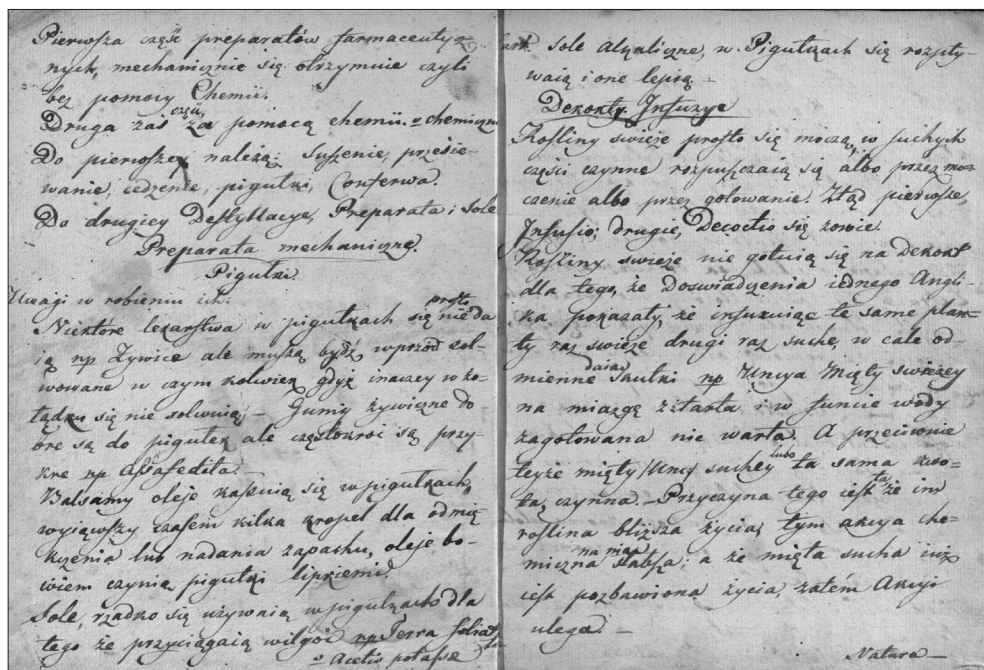 Pierwsza część preparatów farmaceutycz
nych, mechanicznie się otrzymuie czyli
bez pomocy Chemii.
Druga zaś część za pomocą chemii. v chemiczn
Do pierwszey należą: suszenie, przesie-
wanie, cedzenie, pigułki, Conserwa.
Do drugiey Destyllacye, Preparata i Sole
Preparata mechaniczne.
Pigułki.
Uwagi w robieniu ich.
Niektóre lekarstwa w pigułkach się prosto nie da
ią np Żywice ale muszą bydź wprzód sol-
wowane w czym kolwiek gdyż inaczey w żo-
łądku się nie solwuią. – Gumy żywiczne do
bre są do pigułek ale częstokroć są przy-
kre np Assafedita. –
Balsamy oleje kasuią się w pigułkach,
wyiąwszy czasem kilka kropel dla odmię
kczenia lub nadania zapachu, oleje bo-
wiem czynią pigułki lipkiemi.
Sole, rzadko się używaią w pigułkach dla
tego że przyciągaią wilgoć np Terra foliat
v Acetis potassæ
Sole alkaliczne, w Pigułkach się rozpły-
waią i one lepią –
Dekokty Infuzye
Rośliny swieże prosto się moczą, w suchych
części czynne rozpuszczaią się albo przez mo
czenie albo przez gotowanie. Ztąd pierwsze,
Infusio; drugie, Decoctio się zowie.
Rośliny swieże nie gotuią się na Dekokt
dla tego, że Doswiadczenia iednego Angli-
ka pokazały, że infuzuiąc te same plan-
ty raz swieże drugi raz suche, w cale od-
mienne daią skutki np Uncya Mięty swieżey
na miazgę ztarta i w funcie wody
zagotowana nie warta. A przeciwnie
teyże mięty /Uncy/ suchey lubo ta sama kwo-
ta, czynna. – Przyczyna tego iest ta że im
roślina bliższa życia, tym akcya che-
miczna na nią słabsza; a że mięta sucha iuż
iest pozbawiona życia, zatém Akcyi
ulega. –
Natura –